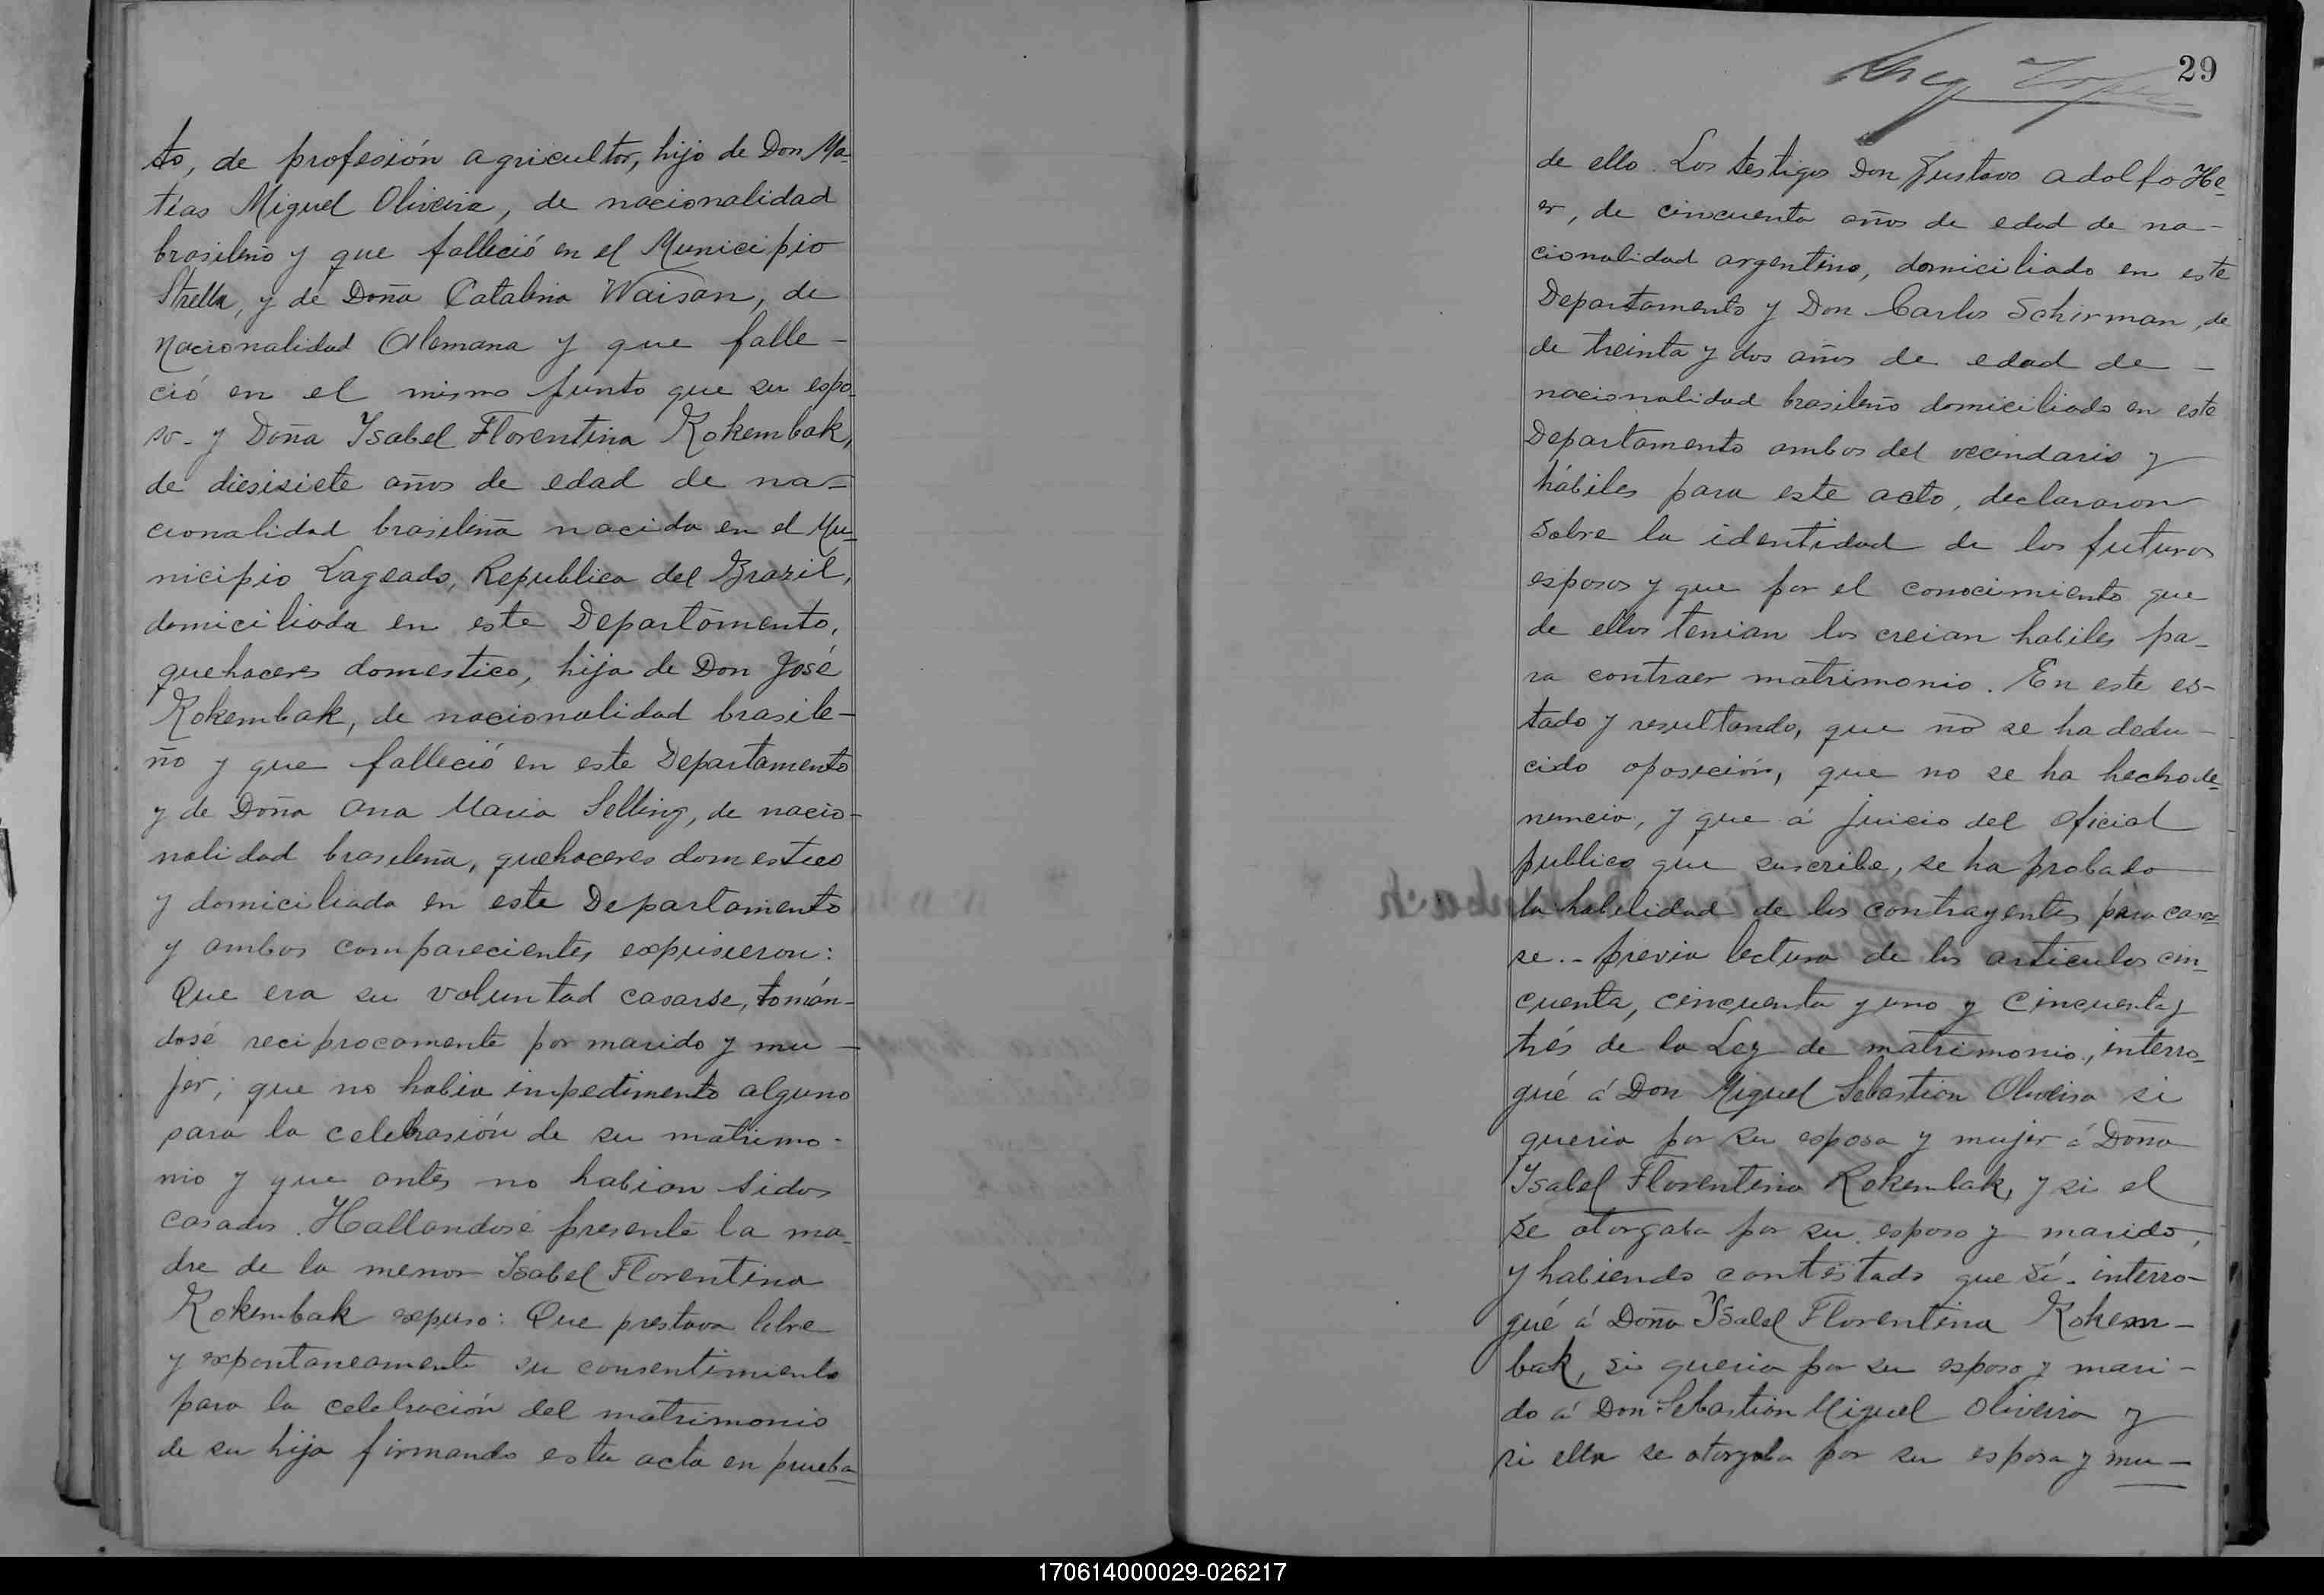 to, de profesión agricultor, hijo de Don Ma-
tías Miguel Oliveira, de nacionalidad
brasileño y que falleció en el Municipio
Strella, y de Doña Catalina Waisan, de
nacionalidad Alemana y que falle-
ció en el mismo punto que su espo-
so- y Doña Ysabel Florentina Kokembak,
de diesisiete años de edad de na-
cionalidad brasileña nacida en el Mu-
nicipio Lageado, Republica del Brazil,
domiciliada en este Departamento,
quehaceres domestico, hija de Don José
Kokembak, de nacionalidad brasile-
ño y que falleció en este Departamento
y de Doña Ana Maria Selling, de nacio-
nalidad brasileña, quehaceres domestico
y domiciliada en este Departamento
y ambos comparecientes expusieron:
Que era su voluntad casarse, tomán-
dosé reciprocamente por marido y mu-
jer; que no habia impedimento alguno
para la celebrasión de su matrimo-
nio y que antes no habian sidos
casados. Hallandosé presente la ma-
dre de la menor Isabel Florentina
Kokembak expuso: Que prestava libre
y expontaneamente su consentimiento
para la celebración del matrimonio
de su hija firmando esta acta en prueba
29
de ello. Los testigos Don Gustavo Adolfo He-
er, de cincuenta años de edad de na-
cionalidad argentino, domiciliado en este
Departamento y Don Carlos Schirman, de
de treinta y dos años de edad de -
nacionalidad brasileño domiciliado en este
Departamento ambos del vecindario y
hábiles para este acto, declararon
sobre la identidad de los futuros
esposos y que por el conocimiento que
de ellos tenian los creian habiles pa-
ra contraer matrimonio. En este es-
tado y resultando, que no se ha dedu-
cido oposición, que no se ha hecho de-
nuncia, y que á juicio del oficial
publico que suscribe, se ha probado
la habilidad de los contrayentes para casar-
se.- previa lectura de los articulos cin-
cuenta, cincuenta y uno y cincuenta y
trés de la Ley de matrimonio, interro-
gué á Don Miguel Sebastian Oliveira si
queria por su esposa y mujer á Doña
Ysabel Florentina Kokembak, y si el
se otorgaba por su esposo y marido,
y habiendo contestado que sí- interro-
gué á Doña Ysabel Florentina Kokem-
bak, si queria por su esposo y mari-
do á Don Sebastián Miguel Oliveira y
si ella se otorgaba por su esposa y mu-
170614000029-026217